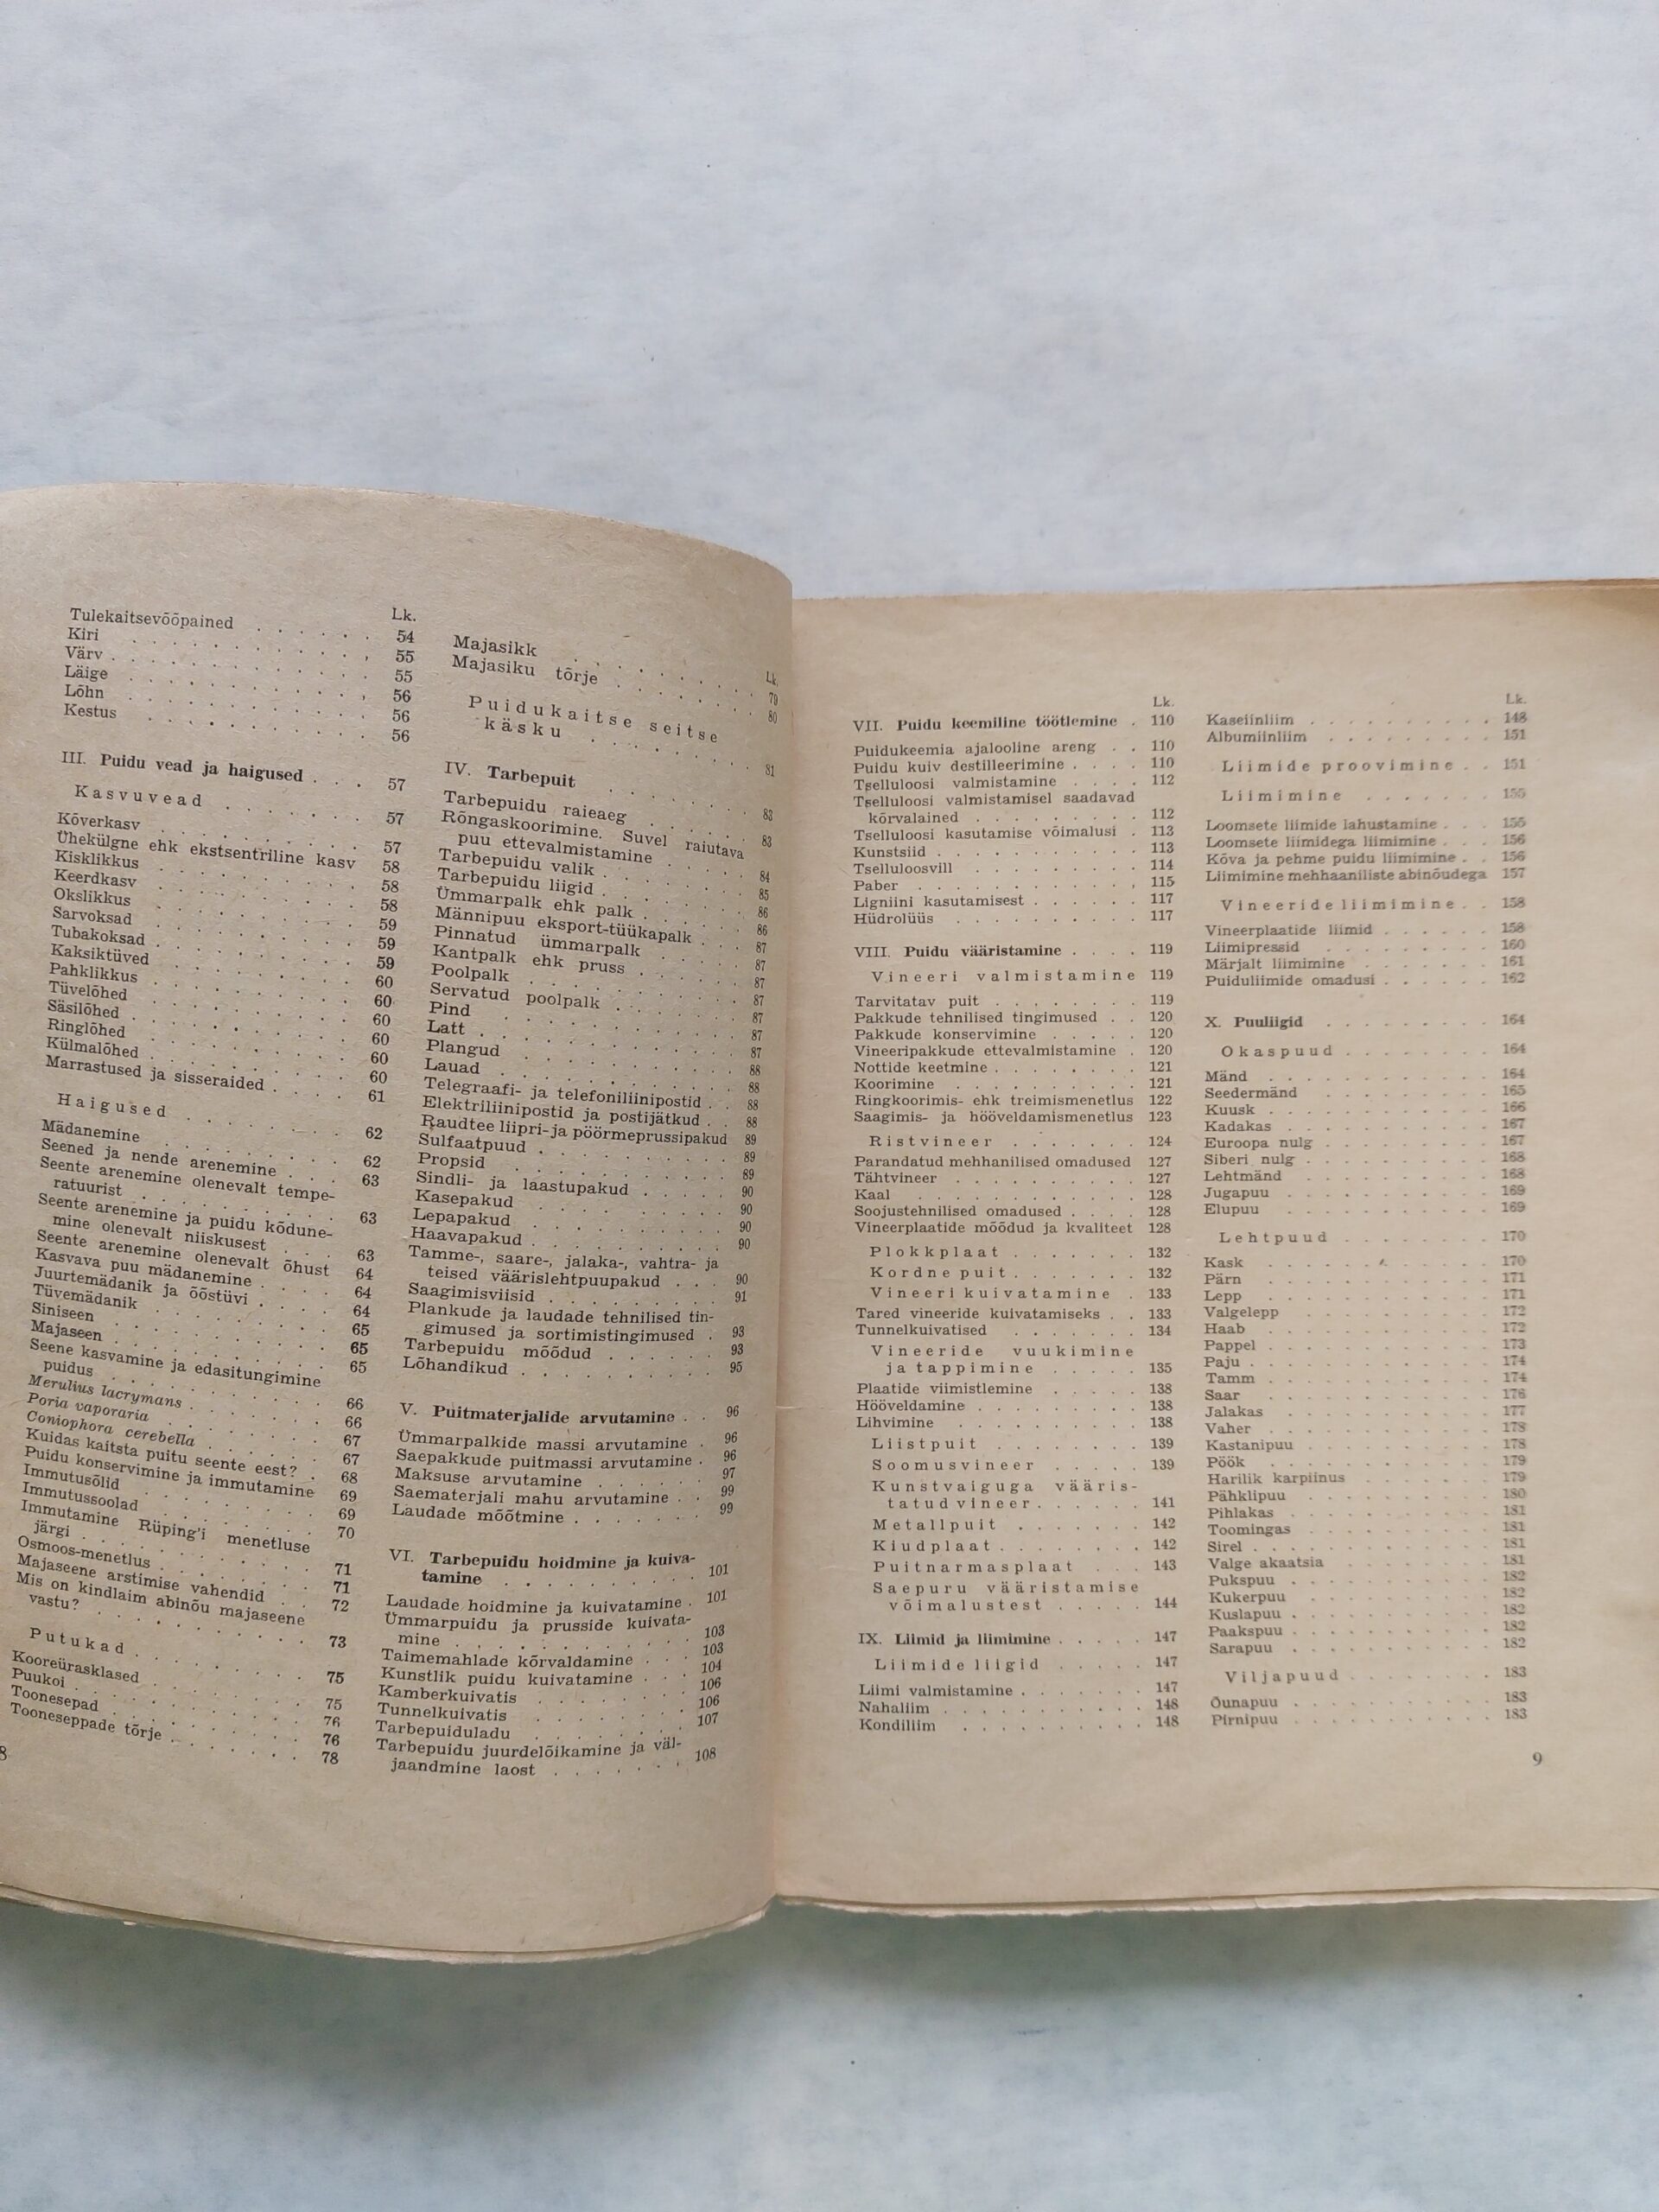 Lk.
Tulekaitsevööpained . . . . . . 54
Kiri . . . . . . . . . . 55
Värv . . . . . . . . . . 55
Läige . . . . . . . . . . 56
Lõhn . . . . . . . . . . 56
Kestus . . . . . . . . . 56
III. Puidu vead ja haigused . . . 57
Kasvuvead . . . . . . 57
Kõverkasv . . . . . . . . 57
Ühekülgne ehk ekstsentriline kasv 58
Kisklikkus . . . . . . . . 58
Keerdkasv . . . . . . . . 58
Okslikkus . . . . . . . . 59
Sarvoksad . . . . . . . . 59
Tubakoksad . . . . . . . . 59
Kaksiktüved . . . . . . . . 60
Pahklikkus . . . . . . . . 60
Tüvelõhed . . . . . . . . 60
Säsilõhed . . . . . . . . 60
Ringlõhed . . . . . . . . 60
Külmalõhed . . . . . . . . 60
Marrastused ja sisseraided . . . . 61
Haigused . . . . . . . 62
Mädanemine . . . . . . . . 62
Seened ja nende arenemine . . . 63
Seente arenemine olenevalt tempe-
ratuurist . . . . . . . . 63
Seente arenemine ja puidu kõdune-
mine olenevalt niiskusest . . . 63
Seente arenemine olenevalt õhust 64
Kasvava puu mädanemine . . . . 64
Juurtemädanik ja õõstüvi . . . . 64
Tüvemädanik . . . . . . . . 65
Siniseen . . . . . . . . . 65
Majaseen . . . . . . . . . 65
Seene kasvamine ja edasitungimine
puidus . . . . . . . . . 66
Merulius lacrymans . . . . . . 66
Poria vaporaria . . . . . . . 67
Coniophora cerebella . . . . . . 67
Kuidas kaitsta puitu seente eest? . 68
Puidu konservimine ja immutamine 69
Immutusõlid . . . . . . . . 69
Immutussoolad . . . . . . . 70
Immutamine Rüping'i menetluse
järgi . . . . . . . . . . 71
Osmoos-menetlus . . . . . . . 71
Majaseene arstimise vahendid . . 72
Mis on kindlaim abinõu majaseene
vastu? . . . . . . . . . 73
Putukad . . . . . . . . 75
Kooreürasklased . . . . . . . 75
Puukoi . . . . . . . . . . 76
Toonesepad . . . . . . . . 76
Tooneseppade tõrje . . . . . . 78
8
Lk.
Majasikk . . . . . . . . 79
Majasiku tõrje . . . . . . . 80
Puidukaitse seitse
käsku . . . . . . . . 81
IV. Tarbepuit . . . . . . . 83
Tarbepuidu raieaeg . . . . . . 83
Rõngaskoorimine. Suvel raiutava
puu ettevalmistamine . . . . . 84
Tarbepuidu valik . . . . . . . 85
Tarbepuidu liigid . . . . . . . 86
Ümmarpalk ehk palk . . . . . 86
Männipuu eksport-tüükapalk . . . 87
Pinnatud ümmarpalk . . . . . 87
Kantpalk ehk pruss . . . . . . 87
Poolpalk . . . . . . . . . 87
Servatud poolpalk . . . . . . 87
Pind . . . . . . . . . . 87
Latt . . . . . . . . . . 87
Plangud . . . . . . . . . 88
Lauad . . . . . . . . . . 88
Telegraafi- ja telefoniliinipostid . . 88
Elektriliinipostid ja postijätkud . . 88
Raudtee liipri- ja pöörmeprussipakud 89
Sulfaatpuud . . . . . . . . 89
Propsid . . . . . . . . . 89
Sindli- ja laastupakud . . . . . 90
Kasepakud . . . . . . . . 90
Lepapakud . . . . . . . . 90
Haavapakud . . . . . . . . 90
Tamme-, saare-, jalaka-, vahtra- ja
teised väärislehtpuupakud . . . 90
Saagimisviisid . . . . . . . . 91
Plankude ja laudade tehnilised tin-
gimused ja sortimistingimused . 93
Tarbepuidu mõõdud . . . . . . 93
Lõhandikud . . . . . . . . 95
V. Puitmaterjalide arvutamine . . 96
Ümmarpalkide massi arvutamine . 96
Saepakkude puitmassi arvutamine . 96
Maksuse arvutamine . . . . . 97
Saematerjali mahu arvutamine . . 99
Laudade mõõtmine . . . . . . 99
VI. Tarbepuidu hoidmine ja kuiva-
tamine . . . . . . . . . 101
Laudade hoidmine ja kuivatamine . 101
Ümmarpuidu ja prusside kuivata-
mine . . . . . . . . . . 103
Taimemahlade kõrvaldamine . . . 103
Kunstlik puidu kuivatamine . . . 104
Kamberkuivatis . . . . . . . 106
Tunnelkuivatis . . . . . . . 106
Tarbepuiduladu . . . . . . . 107
Tarbepuidu juurdelõikamine ja väl-
jaandmine laost . . . . . . . 108
Lk.
VII. Puidu keemiline töötlemine . 110
Puidukeemia ajalooline areng . . 110
Puidu kuiv destilleerimine . . . . 110
Tselluloosi valmistamine . . . . 112
Tselluloosi valmistamisel saadavad
kõrvalained . . . . . . . . 112
Tselluloosi kasutamise võimalusi . 113
Kunstsiid . . . . . . . . . 113
Tselluloosvill . . . . . . . . 114
Paber . . . . . . . . . . 115
Ligniini kasutamisest . . . . . . 117
Hüdrolüüs . . . . . . . . . 117
VIII. Puidu vääristamine . . . . 119
Vineeri valmistamine 119
Tarvitatav puit . . . . . . . . 119
Pakkude tehnilised tingimused . . 120
Pakkude konservimine . . . . . 120
Vineeripakkude ettevalmistamine . 120
Nottide keetmine . . . . . . . 121
Koorimine . . . . . . . . . 121
Ringkoorimis- ehk treimismenetlus 122
Saagimis- ja hööveldamismenetlus 123
Ristvineer . . . . . . . 124
Parandatud mehhanilised omadused 127
Tähtvineer . . . . . . . . . 127
Kaal . . . . . . . . . . . 128
Soojustehnilised omadused . . . . 128
Vineerplaatide mõõdud ja kvaliteet 128
Plokkplaat . . . . . . . 132
Kordne puit . . . . . . . 132
Vineeri kuivatamine . 133
Tared vineeride kuivatamiseks . . 133
Tunnelkuivatised . . . . . . . 134
Vineeride vuukimine
ja tappimine . . . . . 135
Plaatide viimistlemine . . . . . 138
Hööveldamine . . . . . . . . 138
Lihvimine . . . . . . . . . 138
Liistpuit . . . . . . . . 139
Soomusvineer . . . . . 139
Kunstvaiguga vääris-
tatud vineer . . . . . . 141
Metallpuit . . . . . . . 142
Kiudplaat . . . . . . . . 142
Puitnarmasplaat . . . 143
Saepuru vääristamise
võimalustest . . . . . 144
IX. Liimid ja liimimine . . . . . 147
Liimide liigid . . . . . 147
Liimi valmistamine . . . . . . . 147
Nahaliim . . . . . . . . . . 148
Kondiliim . . . . . . . . . 148
Lk.
Kaseiinliim . . . . . . . . . 148
Albumiinliim . . . . . . . . 151
Liimide proovimine . . 151
Liimimine . . . . . . . 155
Loomsete liimide lahustamine . . . 155
Loomsete liimidega liimimine . . . 156
Kõva ja pehme puidu liimimine . . 156
Liimimine mehhaaniliste abinõudega 157
Vineeride liimimine . . 158
Vineerplaatide liimid . . . . . . 158
Liimipressid . . . . . . . . 160
Märjalt liimimine . . . . . . . 161
Puiduliimide omadusi . . . . . . 162
X. Puuliigid . . . . . . . . 164
Okaspuud . . . . . . . . 164
Mänd . . . . . . . . . . 164
Seedermänd . . . . . . . . 165
Kuusk . . . . . . . . . . 166
Kadakas . . . . . . . . . 167
Euroopa nulg . . . . . . . . 167
Siberi nulg . . . . . . . . . 168
Lehtmänd . . . . . . . . . 168
Jugapuu . . . . . . . . . 169
Elupuu . . . . . . . . . . 169
Lehtpuud . . . . . . . . 170
Kask . . . . . . . . . . 170
Pärn . . . . . . . . . . 171
Lepp . . . . . . . . . . 171
Valgelepp . . . . . . . . . 172
Haab . . . . . . . . . . 172
Pappel . . . . . . . . . . 173
Paju . . . . . . . . . . . 174
Tamm . . . . . . . . . . 174
Saar . . . . . . . . . . 176
Jalakas . . . . . . . . . . 177
Vaher . . . . . . . . . . 178
Kastanipuu . . . . . . . . 178
Pöök . . . . . . . . . . 179
Harilik karpiinus . . . . . . 179
Pähklipuu . . . . . . . . . 180
Pihlakas . . . . . . . . . 181
Toomingas . . . . . . . . . 181
Sirel . . . . . . . . . . . 181
Valge akaatsia . . . . . . . 181
Pukspuu . . . . . . . . . . 182
Kukerpuu . . . . . . . . . 182
Kuslapuu . . . . . . . . . . 182
Paakspuu . . . . . . . . . 182
Sarapuu . . . . . . . . . . 182
Viljapuud . . . . . . . . 183
Õunapuu . . . . . . . . . . 183
Pirnipuu . . . . . . . . . . 183
9